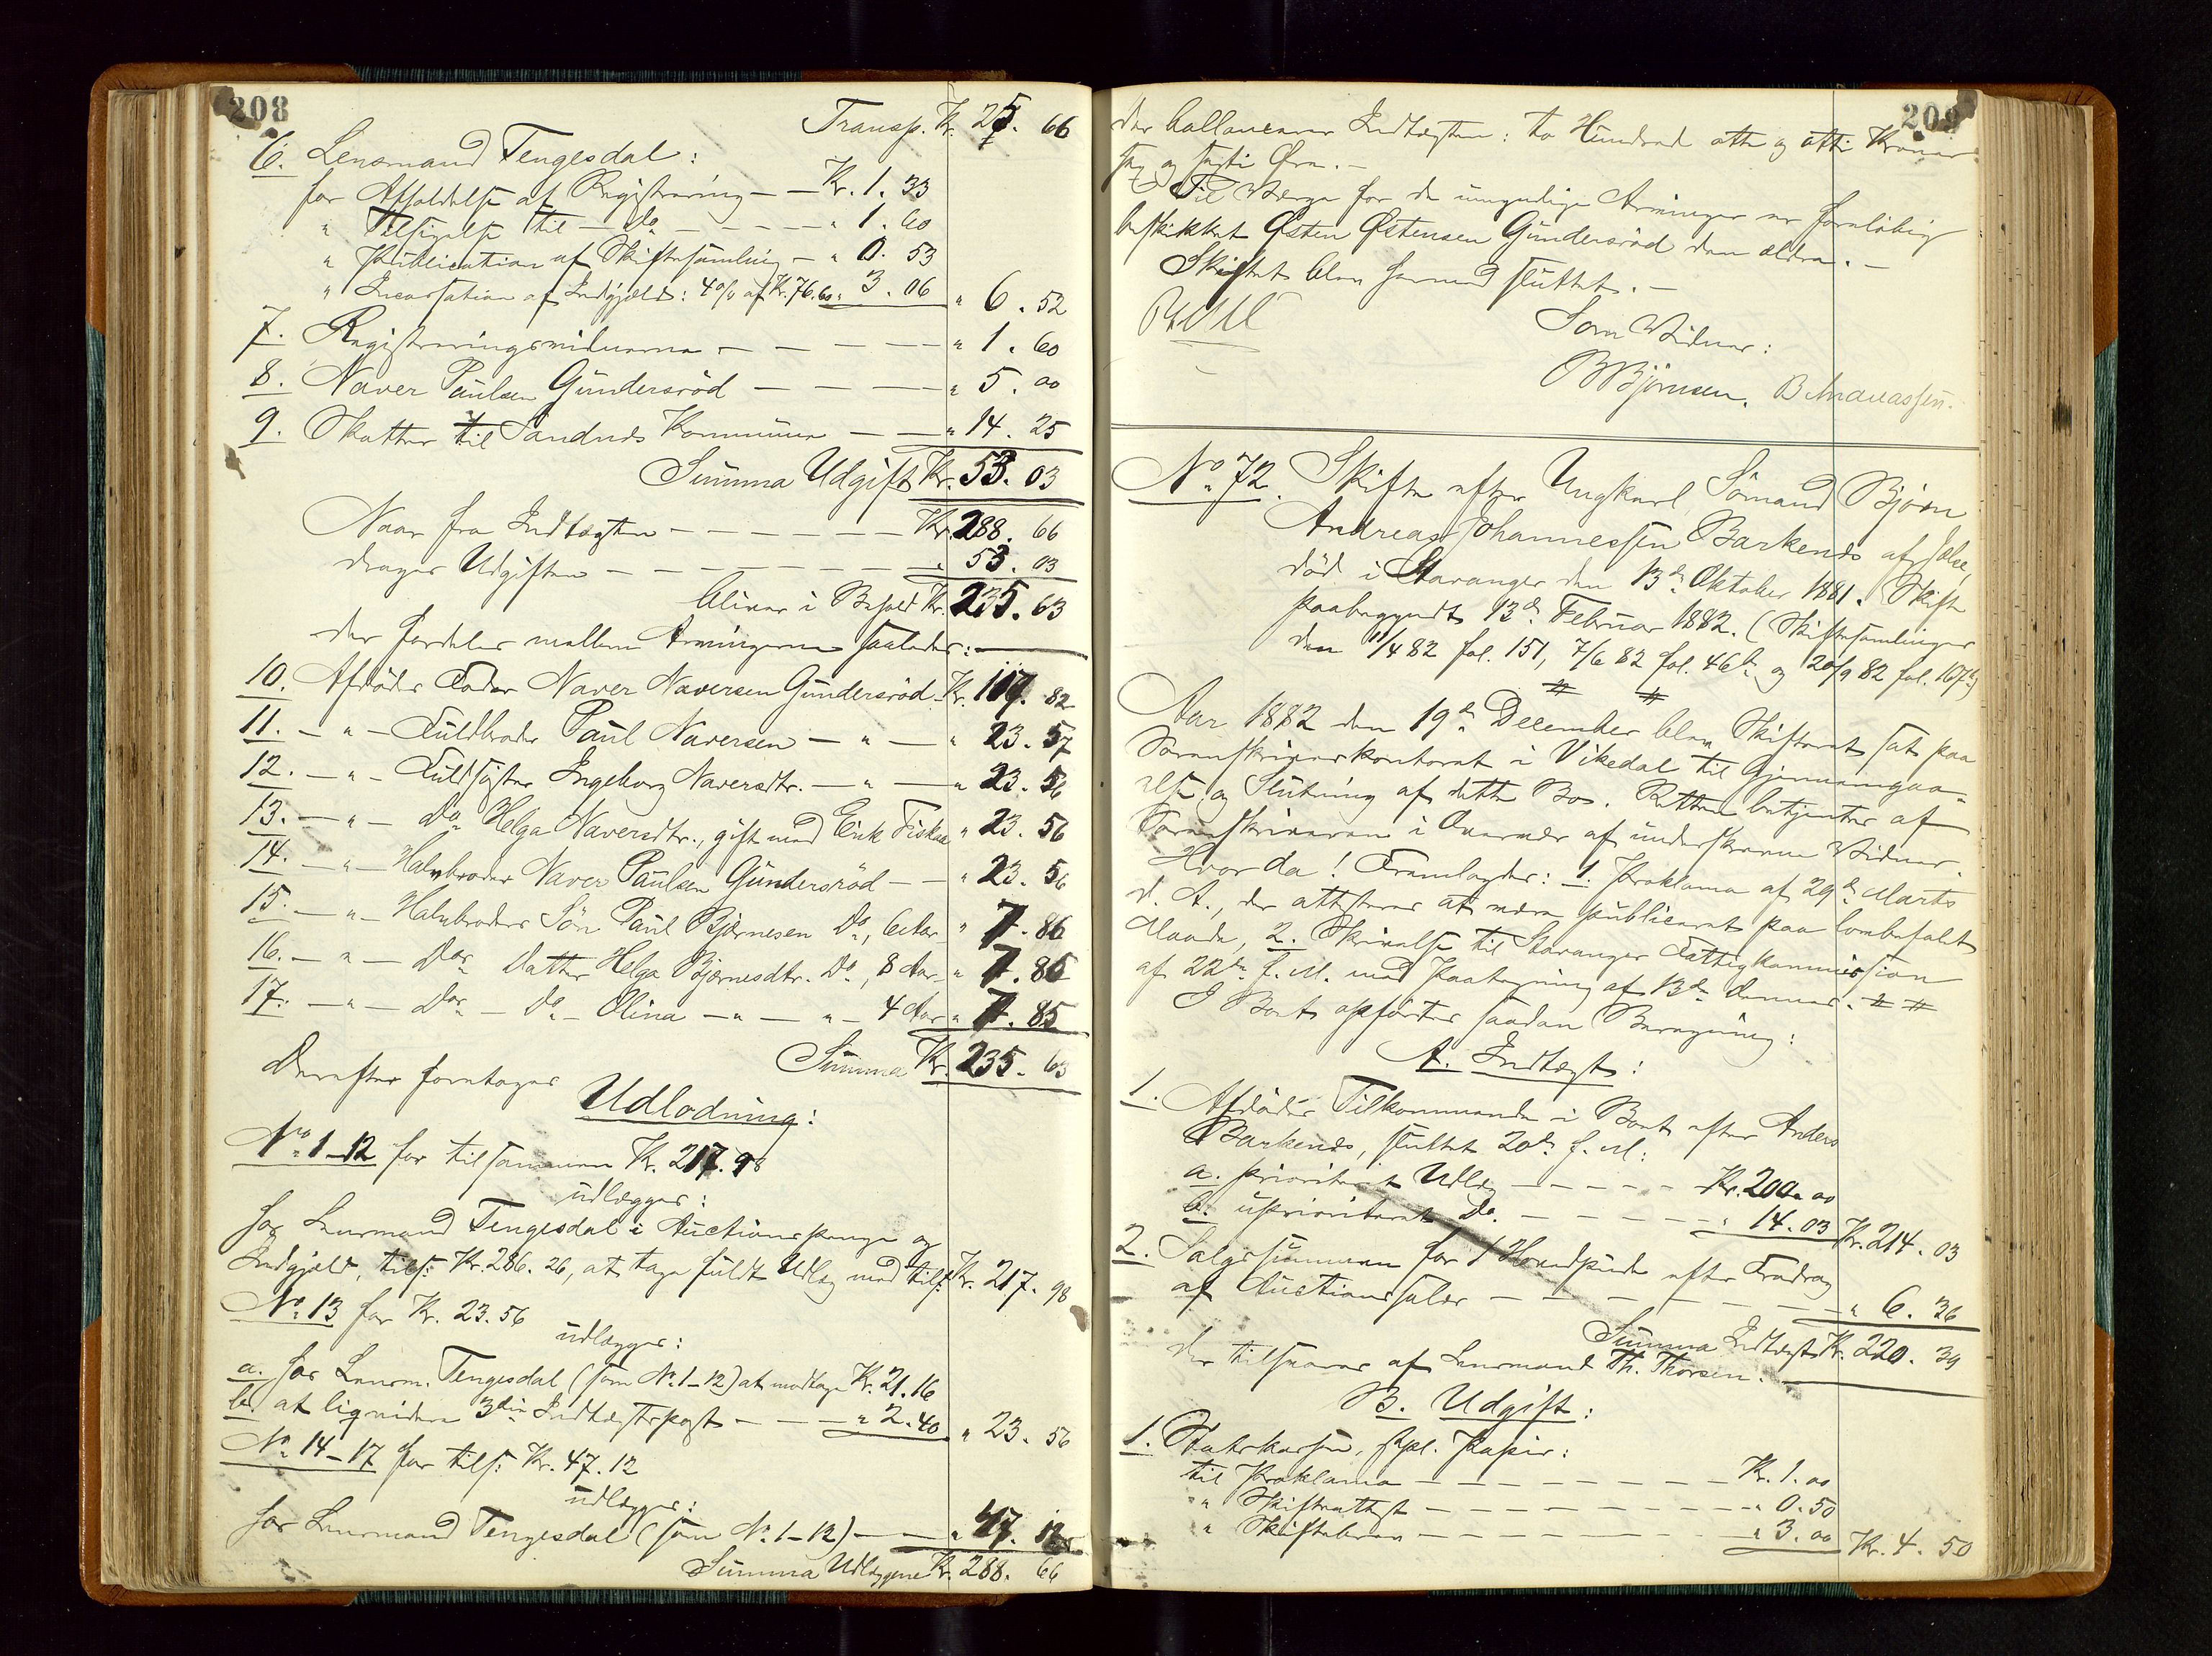 208
Transp. Kr. 25. 66
6. Lensmand Tengesdal:
for Afholdelse af Registrering — — Kr. 1. 33
" Tilsigelse til — Do — — — — — " 1. 60
" Publication af Skiftesamling — " 0. 53
" Incassation af Indgjæld: 4 0/0 af Kr. 76.60 " 3. 06 " 6. 52
7. Registreringsvidnerne — — — — — " 1. 60
8. Naver Paulsen Gundersröd — — — — " 5. 00
9. Skatter til Sandnes Kommune — — " 14. 25
Summa Udgift Kr. 53. 03
Naar fra Indtægten — — — — — — Kr. 288. 66
drages Udgiften — — — — — — — " 53. 03
bliver i Behold Kr. 235. 63
der fordeles mellem Arvingerne saaledes:
10. Afdödes Fader Naver Naversen Gundersröd Kr. 117. 82
11. — " — Fuldbroder Paul Naversen — " — " 23. 57
12. — " — Fuldsöster Ingeborg Naversdtr. — " — " 23. 56
13. — " — Do Helga Naversdtr., gift med Eirik Fiskaa " 23. 56
14. — " — Halvbroder Naver Paulsen Gundersröd — — " 23. 56
15. — " — Halvbroders Sön Paul Bjørnesen Do, 6 Aar " 7. 86
16. — " — Dos Datter Helga Bjørnesdtr. Do, 8 Aar " 7. 85
17. — " — Dos — Do — Olina — " — " — 4 Aar " 7. 85
Summa Kr. 235. 63
Derefter foretages
Udlodning:
No 1–12 for tilsammen Kr. 217.98
udlægges:
hos Lensmand Tengesdal i Auctionspenge og
Indgjæld, tils: Kr. 286. 26, at tage fuldt Udlæg med tils: Kr. 217. 98
No 13 for Kr. 23. 56
udlægges:
a. hos Lensm. Tengesdal (som No 1–12) at modtage Kr. 21. 16
b. at liqvidere 3die Indtægtspost — — — " 2. 40 " 23. 56
No 14–17 for tils: Kr. 47. 12
udlægges:
hos Lensmand Tengesdal (som No 1–12) — — " 47. 12
Summa Udlæggene Kr. 288. 66
209
der ballancerer Indtægten: to Hundrede otte og otti Kroner
sex og sexti Øre. —
Til Værge for de umyndige Arvinger er foreløbig
beskikket Østen Østensen Gundersröd den ældre. —
Skiftet blev hermed sluttet. —
Som Vidner:
BBjörnsen. B Andreassen.
No 72. Skifte efter Ungkarl Sömand Björn
Andreas Johannessen Barkenes af Jelse,
död i Stavanger den 13de Oktober 1881. Skifte
paabegyndt 13de Februar 1882. (Skiftesamlinger
den 11/4 82 fol. 151, 7/6 82 fol. 46b og 20/9 82 fol. 167b)
Aar 1882 den 19de December blev Skifteret sat paa
Sorenskriverkontoret i Vikedal til Gjennemgaa-
else og Slutning af dette Bo. Retten betjentes af
Sorenskriveren i Overvær af underskrevne Vidner.
Hvorda! Fremlagdes: 1. Proklama af 29de Marts
d. A., der attesteres at være publiceret paa lovbefalet
Maade, 2. Skrivelse til Stavanger Fattigkommission
af 22de f. M. med Paategning af 13de dennes.
I Boet opförtes saadan Beregning:
A. Indtægt:
1. Afdödes Tilkommende i Boet efter Anders
Barkenes, sluttet 20de f. M:
a. prioriteret Udlæg — — — — — Kr. 200. 00
b. uprioriteret Do. — — — — — " 14. 03 Kr. 214. 03
2. Salgssummen for 1 Hovedpude efter Fradrag
af Auctionssalær — — — — — — — " 6. 36
Summa Indtægt Kr. 220. 39
der tilsvares af Lensmand Th. Thorsen.
B. Udgift:
1. Statskassen, stpl. Papir:
til Proklama — — — — — — — Kr. 1. 00
" Skifteattest — — — — — — — " 0. 50
" Skiftebrev — — — — — — — " 3. 00 Kr. 4. 50